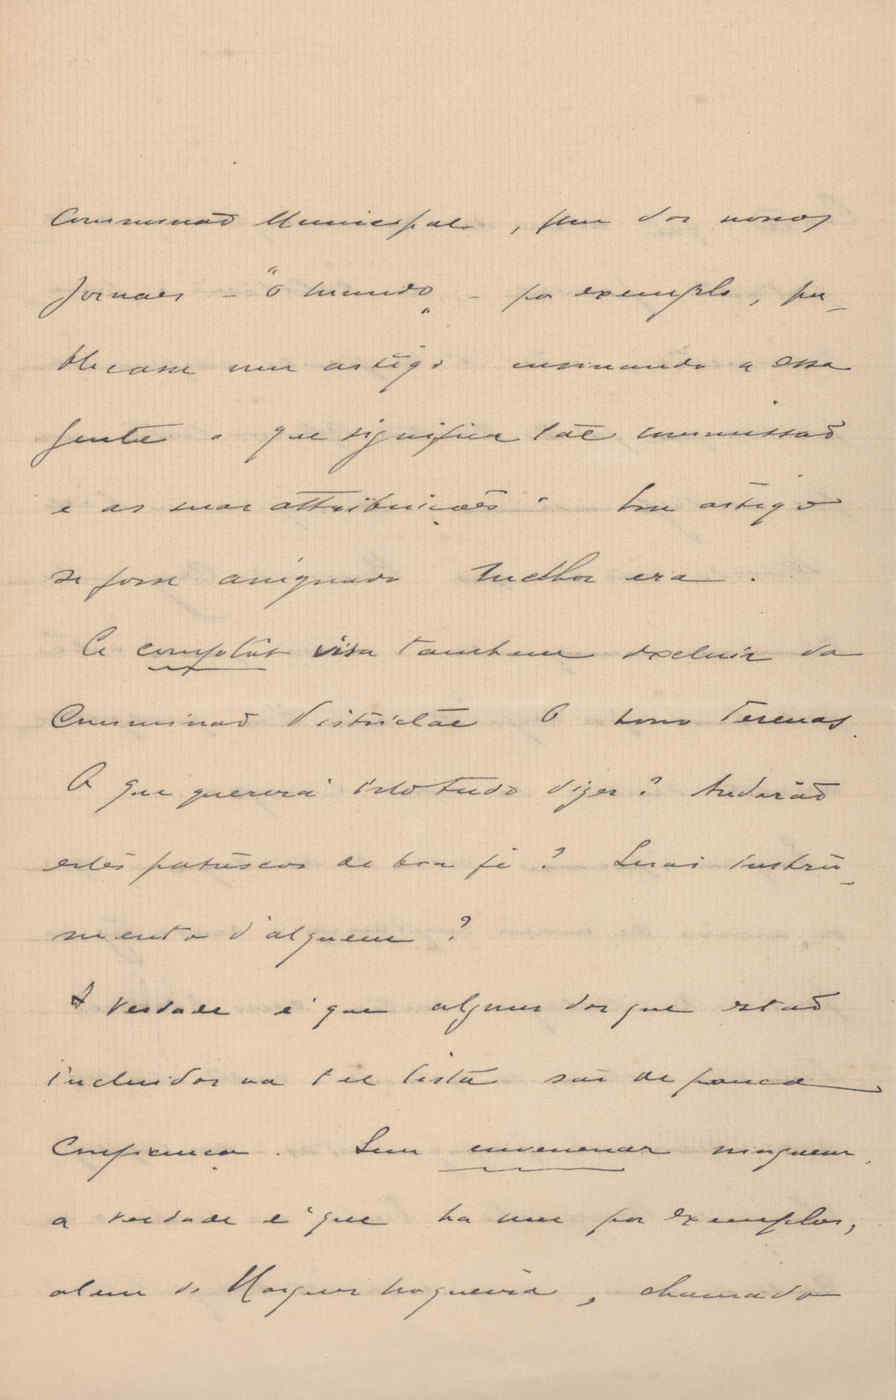 Commissão Municipal, que dos nossos
jornaes – "O Mundo" – por exemplo, pu-
blicasse um artigo ensinando a essa
gente o que significa tal commissão
e as suas attribuições. Um artigo
se fosse assignado melhor era.
Ce complot visa tambem excluir da
Commissão districtal o
O que quererá isto tudo dizer? Andarão
estes patuscos de boa fé? Serão instru-
mento d'alguem?
A verdade é que alguns dos que estão
incluidos na tal lista são de pouca
confiança. Sem envenenar ninguem,
a verdade é que ha um por exemplo,
alem do Marques Nogueira, chamado